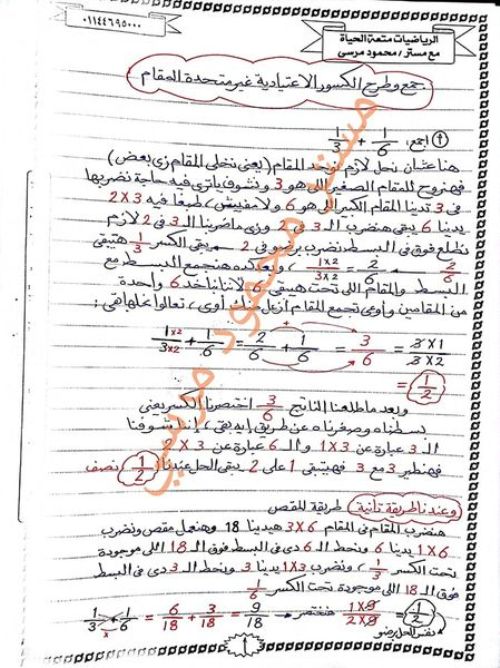 الرياضيات متعة الحياة
مع مستر/ محمود مرسى
٠١١٤٤٦٩٥٠٠٠
جمع وطرح الكسور الاعتيادية غير متحدة المقام
① اجمع: 1/3 + 1/6
هنا عشان نحل لازم نوحد المقام (يعنى نخلى المقام زى بعض)
فهنروح للمقام الصغير اللى هو 3 ونشوف ياترى فيه حاجة نضربها
فى 3 تدينا المقام الكبير اللى هو 6 ولا مفيش، طبعًا فيه 2×3
يدينا 6 يبقى هنضرب الـ 3 فى 2 وزى ماضربنا الـ 3 فى 2 لازم
نطلع فوق فى البسط نضرب برضو فى 2 يبقى الكسر 1/3 هتبقى
2/6 ← 1×2/3×2 = 2/6 ، وبعد كده هنجمع البسط مع
البسط والمقام اللى تحت هيبقى 6 لاننا بناخد 6 واحدة
من المقامين وأوعى تجمع المقام أزعل منك أوى، تعالوا نحلها هى:
1×2/3×2 + 1/6 = 2/6 + 1/6 = 3/6 = 3×1/3×2
= 1/2
وبعد ماطلعنا الناتج 3/6 اختصرنا الكسر يعنى
بسطناه وصغرناه عن طريق إيه بقى، إننا شوفنا
الـ 3 عبارة عن 3×1 والـ 6 عبارة عن 3×2
فهنطير 3 مع 3 فهيتبقى 1 على 2 يبقى الحل عندنا 1/2 نصف
وعندنا طريقة تانية طريقة المقص
هنضرب المقام فى المقام 3×6 هيدينا 18 وهنعمل مقص ونضرب
1×6 يدينا 6 ونحط الـ 6 دى فى البسط فوق الـ 18 اللى موجودة
تحت الكسر 1/3 ، ونضرب 3×1 يدينا 3 ونحط الـ 3 دى فى البسط
فوق الـ 18 اللى موجودة تحت الكسر 1/6
1/3 + 1/6 = 6/18 + 3/18 = 9/18 هنختصر 1×9/2×9 = 1/2
نفس الحل برضو
1
مستر محمود مرسي